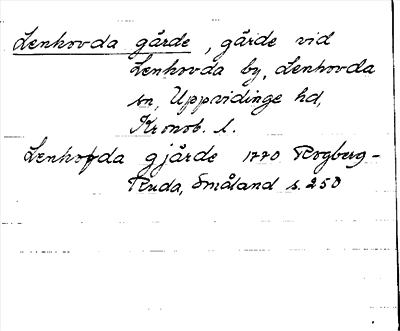 Lenhovda gårde, gärde vid
Lenhovda by, Lenhovda
sn, Uppvidinge hd,
Kronob. l.
Lenhofda gjärde 1770 Rogberg-
Ruda, Småland s. 250